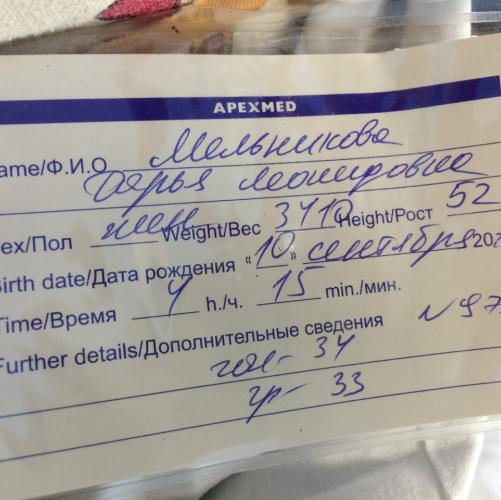 APEXMED
ame/Ф.И.О Мельникова
Дарья Леонидовна
ex/Пол жен Weight/Вес 3410 Height/Рост 52
irth date/Дата рождения «10» сентября 202
Time/Время h./ч. 15 min./мин.
Further details/Дополнительные сведения №97
гол- 34
гр- 33